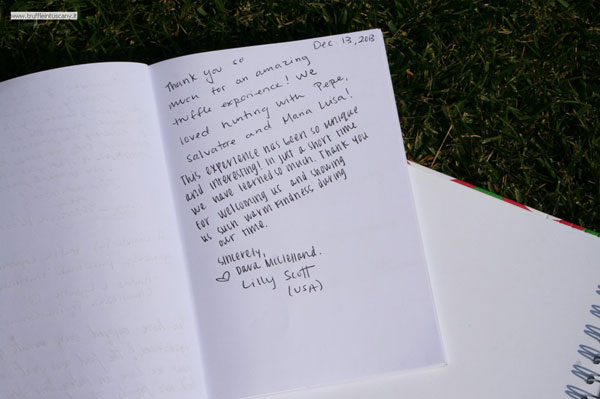 www.truffleintuscany.it
Dec 13, 2013
Thank you so
much for an amazing
truffle experience! We
loved hunting with Pepe,
Salvatore and Maria Luisa!
This experience has been so unique
and interesting! In just a short time
we have learned so much. Thank you
for welcoming us and showing
us such warm kindness during
our time.
Sincerely,
♡ McClelland.
Lilly Scott
(USA)